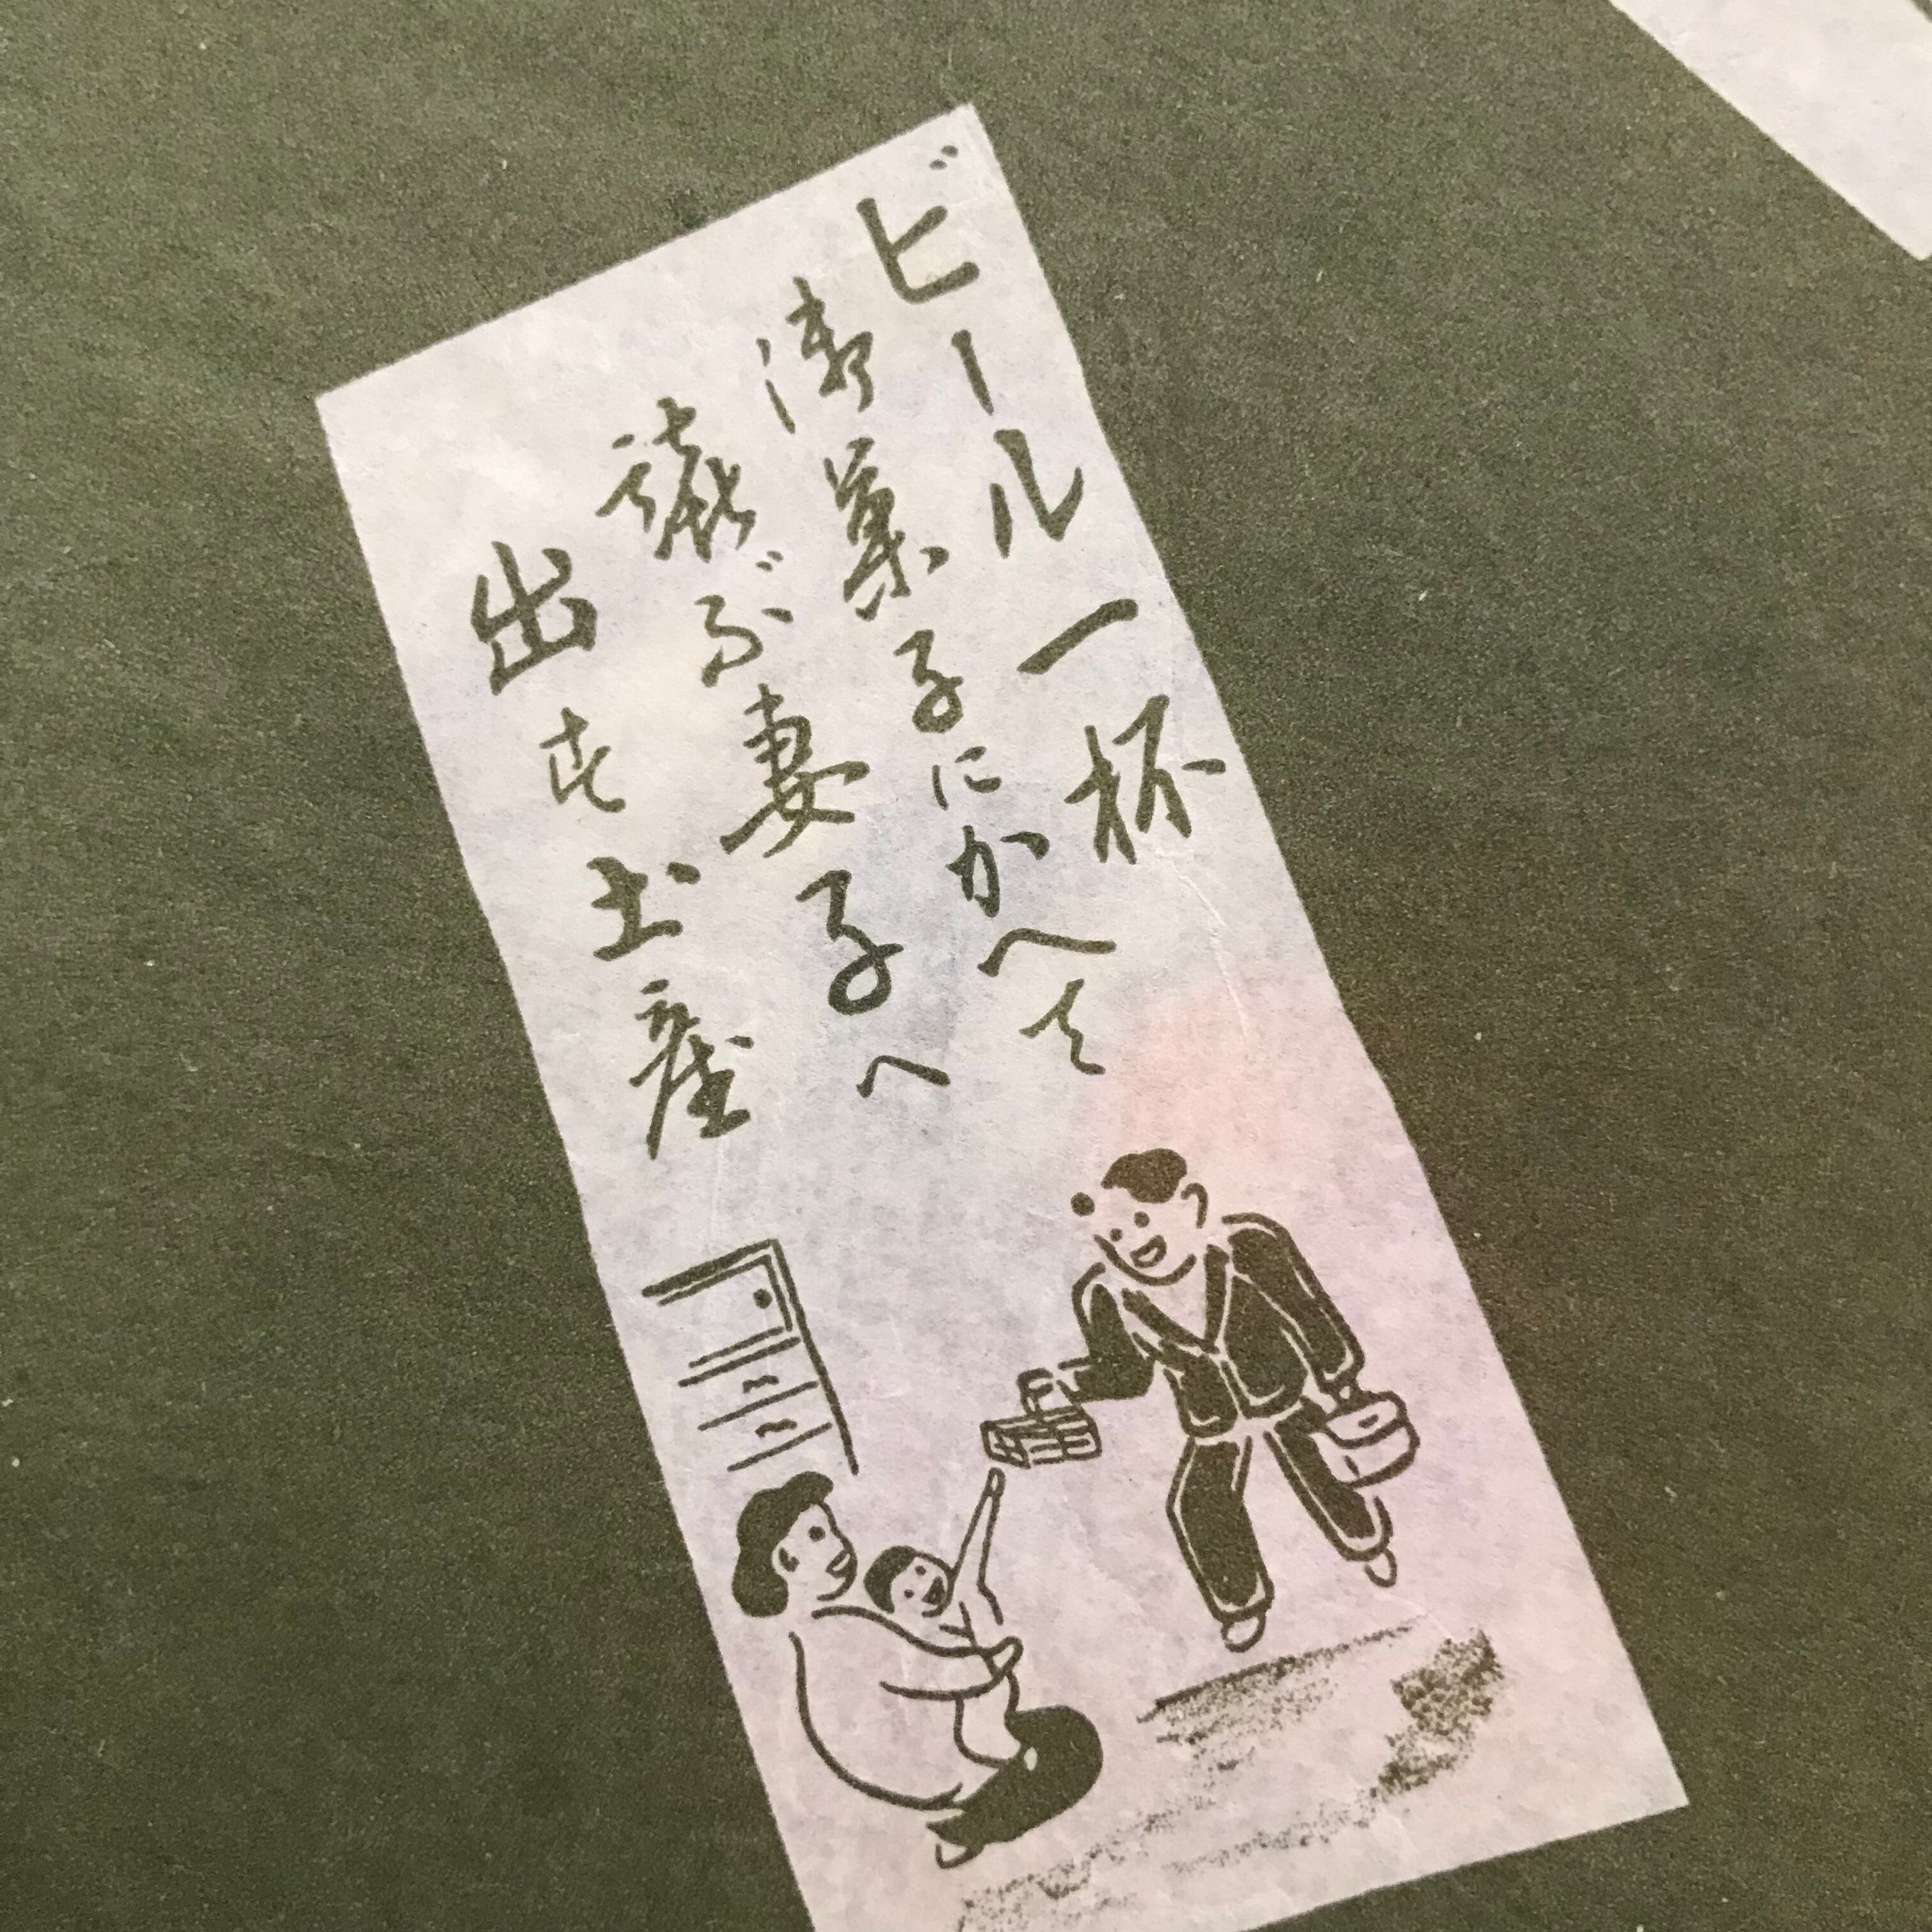 ビール一杯
御菓子にかへて
ぶ妻子へ
出世土産